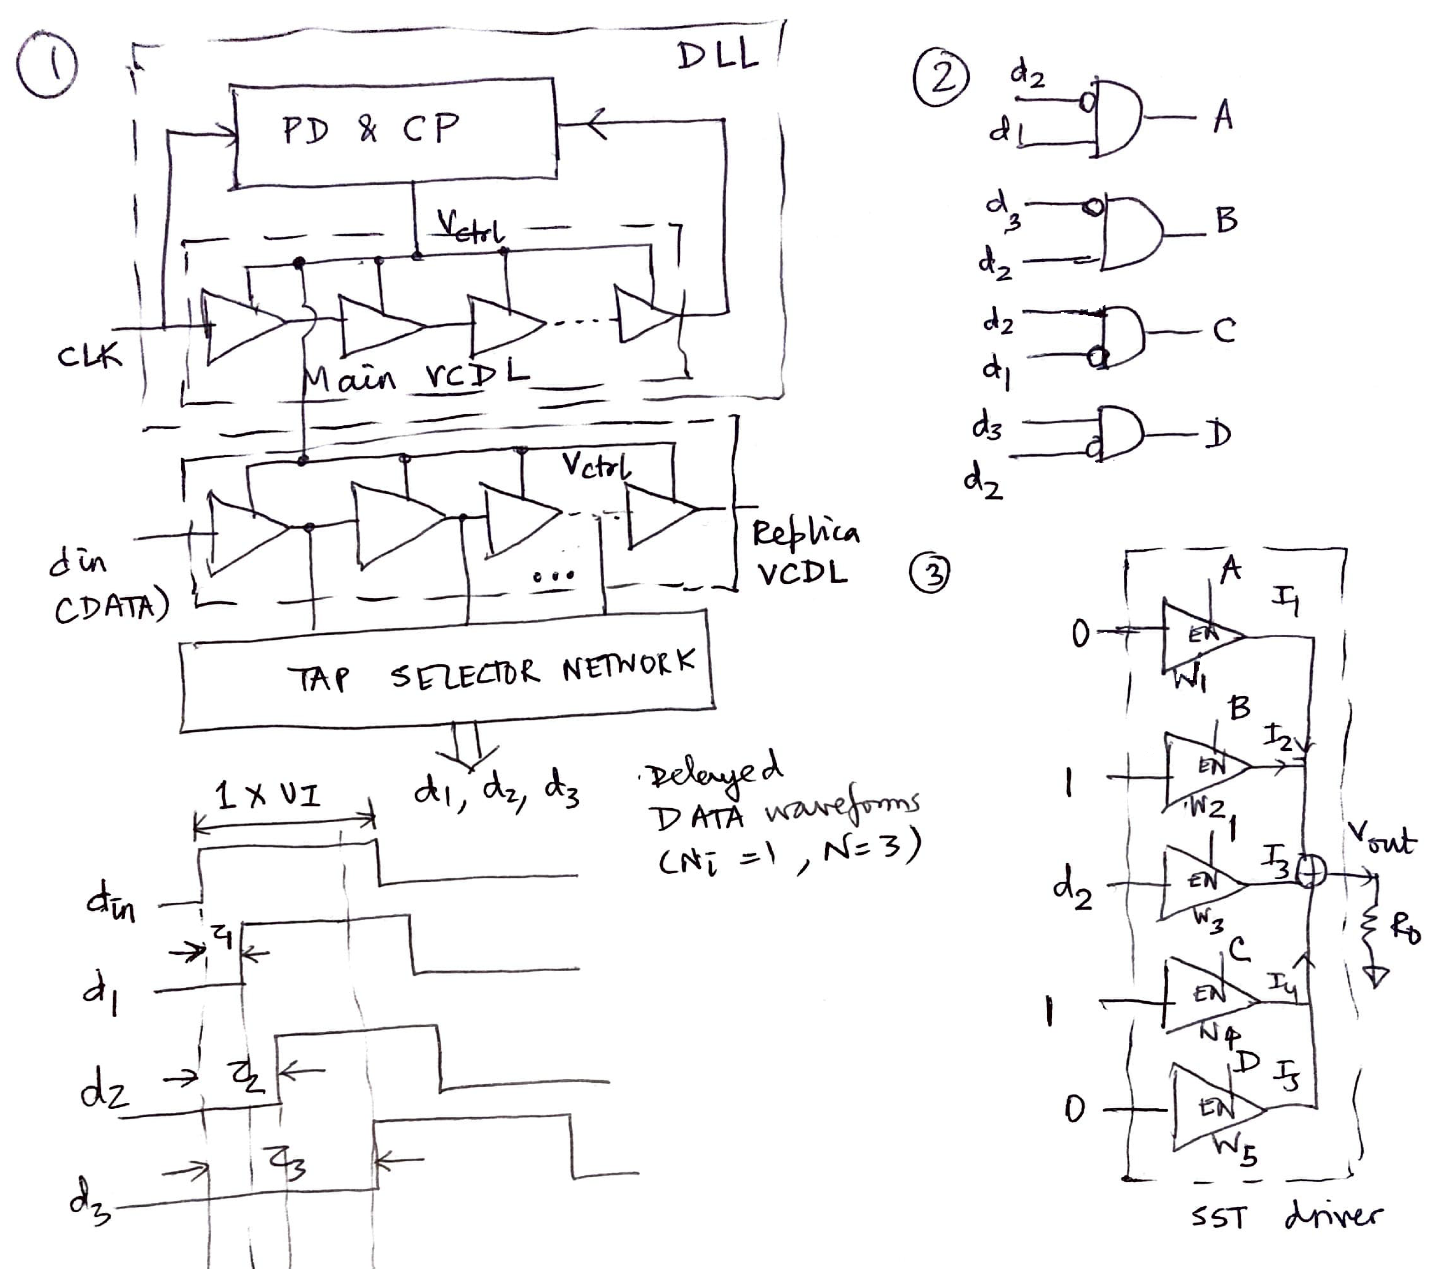 1
DLL
PD & CP
Vctrl
CLK
Main VCDL
Vctrl
din
(DATA)
...
Replica
VCDL
TAP SELECTOR NETWORK
d1, d2, d3
Delayed
DATA waveforms
(Ni = 1, N=3)
1 X UI
din
τ1
d1
τ2
d2
τ3
d3
2
d2
d1
A
d3
d2
B
d2
d1
C
d3
d2
D
3
A
0
EN
I1
W1
B
1
EN
I2
W2
1
d2
EN
I3
W3
Vout
R0
C
1
EN
I4
W4
D
0
EN
I5
W5
SST driver